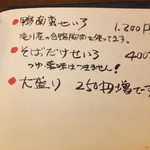 鴨南蛮せいろ 1,200円
滝川産の合鴨胸肉を使ってます。
そばだけせいろ 400
つゆ・薬味はつきません!
大盛り 250円増です